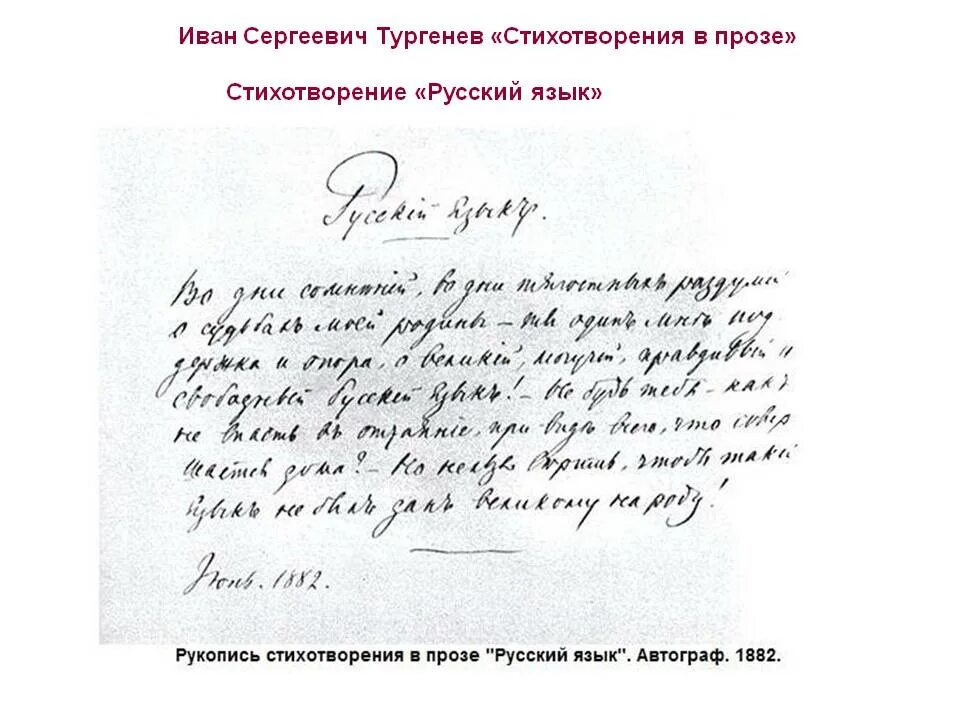 Иван Сергеевич Тургенев «Стихотворения в прозе»
Стихотворение «Русский язык»
Русскій Языкъ.
Во дни сомнѣній, во дни тягостныхъ раздумій
о судьбахъ моей родины – ты одинъ мнѣ под
держка и опора, о великій, могучій, правдивый и
свободный Русскій Языкъ! – Не будь тебя – какъ
не впасть въ отчаяніе, при видѣ всего, что совер
шается дома? – Но нельзя вѣрить, чтобы такой
Языкъ не былъ данъ великому народу!
Июнь. 1882.
Рукопись стихотворения в прозе "Русский язык". Автограф. 1882.